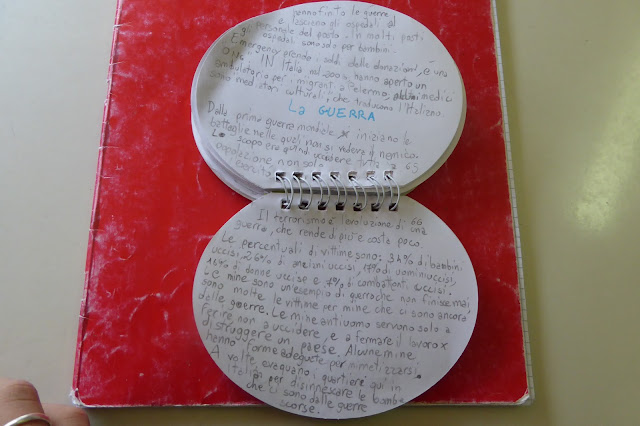 hanno finito le guerre
e lasciano gli ospedali al
personale del posto. In molti posti
gli ospedali sono solo per bambini.
Emergency prende i soldi dalle donazioni, è una
ONG. IN Italia nel 2006 hanno aperto un
ambulatorio per i migranti a Palermo, medici
sono mediatori culturali, che traducono l'Italiano.
La GUERRA
Dalla prima guerra mondiale iniziano le
battaglie nelle quali non si vedeva il nemico.
Lo scopo era quindi uccidere tutta la
popolazione, non solo
l'esercito.
65
66
Il terrorismo è l'evoluzione di una
guerra, che rende di più e costa poco.
Le percentuali di vittime sono: 34% di bambini
uccisi, 26% di anziani uccisi, 17% di uomini uccisi,
16% di donne uccise e 7% di combattenti uccisi.
Le mine sono un'esempio di guerra che non finisce mai
sono molte le vittime per mine che ci sono ancora
delle guerre. Le mine antiuomo servono solo a
ferire non a uccidere, e a fermare il lavoro x
distruggere un paese. Alcune mine
hanno forme adeguate per mimetizzarsi.
A volte evaquano i quartieri qui in
Italia per disinnescare le bombe
che ci sono dalle guerre
scorse.